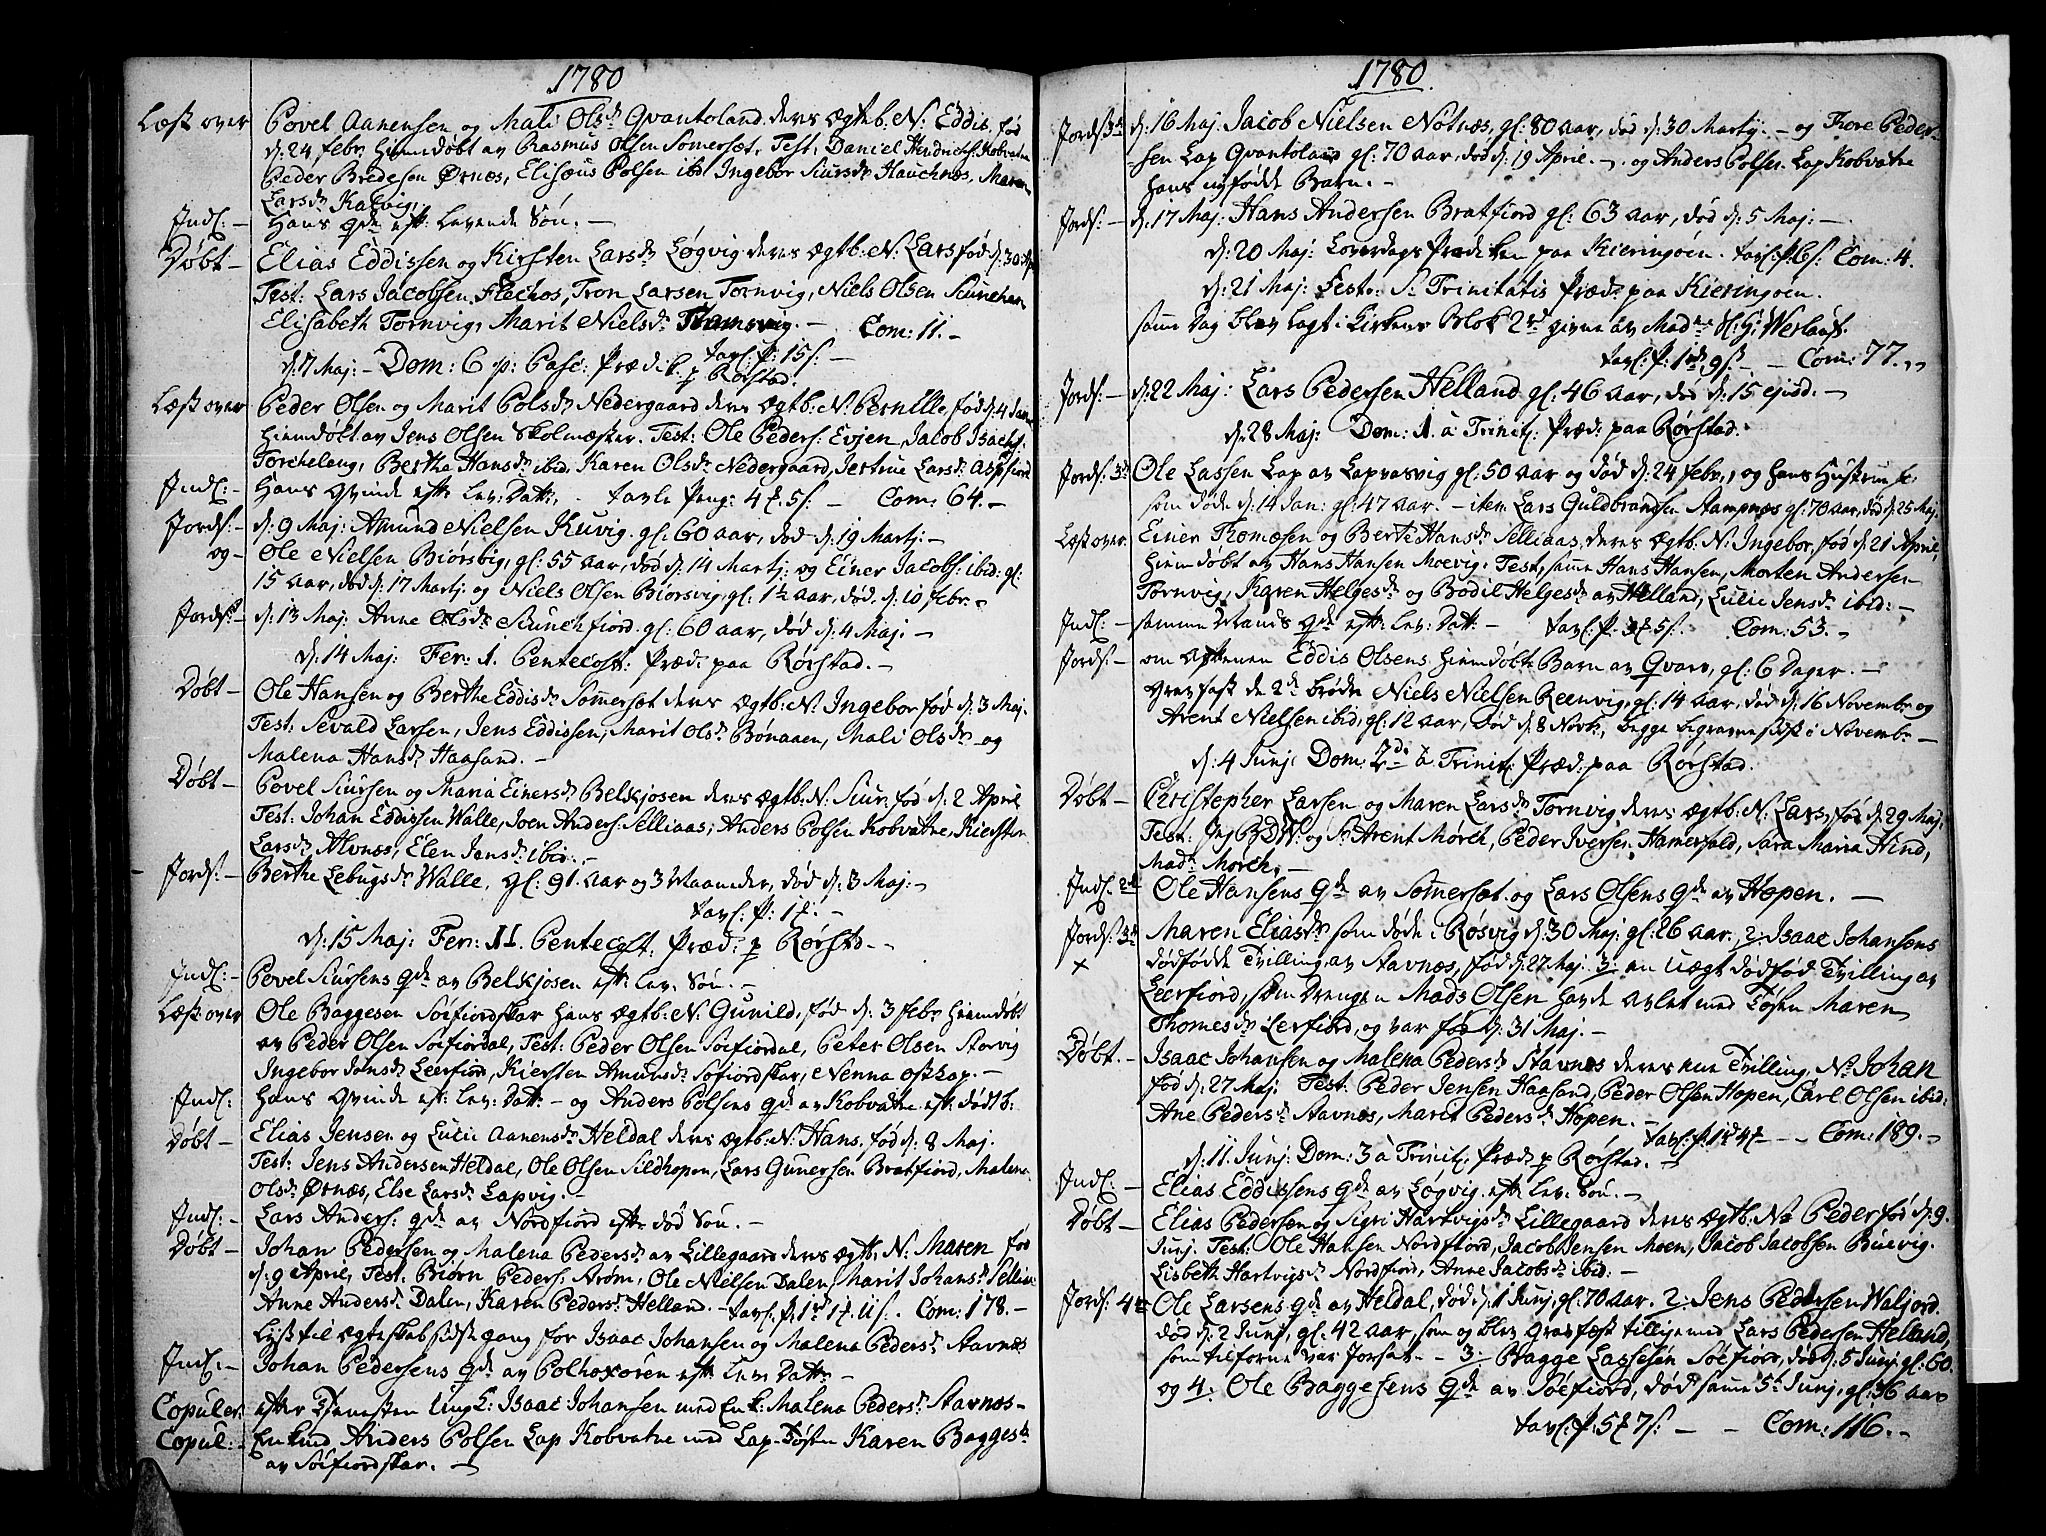 1780
Læst over Povel Aanensen og Mali Olsdr Qvantoland deres ægtb: N: Eddis, fød
d: 24 febr. hiemdøbt av Rasmus Olsen Somersæt, Test: Daniel Hendrichs: Kobvatne
Peder Bredesen Ørnæs, Elisæus Polsen ibid Ingebor Siursdr Hauchnæs, Maren
Larsdr Kalvig,
Indl: – Hans qde eft: levende Søn. –
Døbt – Elias Eddissen og Kirsten Larsdr Løgvig deres ægtb: N: Lars fød d: 30 Apr
Test: Lars Jacobsen Flechos, Tron Larsen Tornvig, Niels Olsen
Elisabeth Tornvig, Marit Nielsdr – Com: 11. –
tavl: p: 15 s: –
d: 7 Maj: – Dom: 6 p: Pasc: Præd: p Rørstad.
Læst over Peder Olsen og Marit Polsdr Nedergaard deres ægtb: N: Pernille, fød d: 4 Jan
hiemdøbt av Jens Olsen Skolmæster. Test: Ole Peders: Evjen Jacob Isachs:
Torcheleng, Berthe Hansdr ibid, Karen Olsdr Nedergaard, Jertrue Larsdr Aspfiord
Indl: – Hans qvinde eft: lev: Datt:, – tavle Peng: 4 5 s: – Com: 64. –
Jords: – d: 9 Maj: Amund Nielsen Kuvig gl: 60 aar, død d: 19 Martj: –
og – Ole Nielsen Biorsvig, gl: 55 aar, død d: 14 Martj: og Einer Jacobs: ibid: gl:
15 aar, død d: 17 Martj: og Niels Olsen Biorsvig, gl: 1½ aar, død d: 10 febr. –
Jords: – d: 13 Maj: Anne Olsdr gl: 60 aar, død d: 4 Maj: –
d: 14 Maj: Fer: 1. Pentecost: Præd: paa Rørstad. –
Døbt – Ole Hansen og Berthe Eddisdr Somersæt deres ægtb: N: Ingebor fød d: 3 Maj.
Test: Sevald Larsen, Jens Eddissen, Marit Olsdr Bønaaen, Mali Olsdr og
Malena Hansdr Haasand. –
Døbt – Povel Siursen og Maria Einersdr Belskjosen deres ægtb: N: Siur, fød d: 2 April
Test: Johan Eddissen Walle, Joen Anders: Selliaas, Anders Polsen Kobvatne, Kiersten
Larsdr Alvnæs, Elen Jensdr ibid: –
Jords: – Berthe Lebugsdr Walle, gl: 91 aar og 3 Maaneder, død d: 3 Maj: –
tavl: p: 1 –
d: 15 Maj: Fer: II. Pentecost: Præd: p Rørstd. –
Indl: – Povel Siursens qde av Belskjosen eft: lev: Søn. –
Læst over Ole Baggesen Söifiordskar hans ægtb: N: Gunild, fød d: 3 febr hiemdøbt
av Peder Olsen Söifiordal, Test: Peder Olsen Söifiordal, Peter Olsen Storvig
Ingebor Jonsdr Leerfior, Kiersten Amunsdr Söfiordskar, Nenna –
Indl: Hans qvinde eft: lev: Datt: – og Anders Polsens qde av Kobvatne eft: dødt b:
Døbt – Elias Jensen og Lucie Aanensdr Heldal deres ægtb: N: Hans, fød d: 8 Maj.
Test: Jens Andersen Heldal, Ole Olsen Sildhopen, Lars Gunersen Bratfiord, Malena
Olsdr Ørnæs, Else Larsdr Lapvig. –
Indl: – Lars Anders: qde av Nordfiord eft: død Søn. –
Døbt – Johan Pedersen og Malena Pedersdr av Lillegaard deres ægtb: N: Maren fød
d: 9 April, Test: Biørn Peders: Strøm, Ole Nielsen Dalen, Marit Johansdr
Anne Andersdr Dalen, Karen Pedersdr Helland. – tavl: p: 1 rd 1 11 s. Com: 178. –
Lyst til ægteskab sidste gang for Isaac Johansen og Malena Pedersdr Stavnæs
Indl: – Johan Pedersens qde av eft: lev: Datt: –
Copuler: efter Tienesten Ung k: Isaac Johansen med Enk: Malena Pedersdr Stavnæs –
Copul: – Enkmd Anders Polsen Lap Kobvatne med Lap-Tøsen Karen Baggesdr
av Söifiordskar. –
1780.
Jords: 3de d: 16 Maj. Jacob Nielsen Nötnæs, gl: 80 aar, død d: 30 Martj. – og Tore Peder-
sen Lap Qvantoland gl: 70 aar, død d: 19 April. –, og Anders Polsen Lap Kobvatne
Hans nyfødde Barn. –
Jords: – d: 17 Maj: Hans Andersen Bratfiord gl: 63 aar, død d: 5 Maj: –
d: 20 Maj: Löverdags Prædiken paa Kieringøen. tavl: p: 6 s: Com: 4.
d: 21 Maj: Festo S: Trinitatis Præd: paa Kieringøen.
samme Dag blev lagt i Kirkens Blok 2 rd given av Madme Werlauf.
tavl: p: 1 rd 9 s – Com: 77. –
Jords: – d: 22 Maj: Lars Pedersen Helland gl: 46 aar, død d: 15 ejusd. –
d: 28 Maj: Dom: 1. à Trinit: Præd: paa Rørstad.
Jords: 3de Ole Lassen Lap av Lapvasvig gl: 50 aar og død d: 24 febr:, og hans Hustrue
som døde d: 14 Jan: gl: 47 aar. – item Lars Guldbrandsen Stampnæs gl: 70 aar, død d: 25 Maj.
Læst over. Einer Thomæsen og Berte Hansdr Selliaas, deres ægtb: N: Ingebor, fød d: 21 April,
hiemdøbt av Hans Hansen Moevig, Test, samme Hans Hansen, Morten Andersen
Tornvig, Karen Helgesdr og Bodil Helgesdr av Helland, Lucie Jensdr ibid: –
Indl: – samme Mands qde eft: lev: Datt: – tavl: p: 5 s. Com: 53. –
Jords: – om aftenen Eddis Olsens hiemdøbte Barn av Qvarv, gl: 6 Dager. –
gravfæst de 2de brødre Niels Nielsen Reenvig, gl: 14 aar, død d: 16 Novembr og
Arent Nielsen ibid, gl: 12 aar, død d: 8 Novbr, begge begravne sidst i Novembr –
d: 4 Junj: Dom: 2di à Trinit: Præd: paa Rørstad.
Døbt – Christopher Larsen og Maren Larsdr Tornvig deres ægtb: N: Lars, fød d: 29 Maj:
Test: Jeg og Sr Arent Mörch, Peder Iversen Hamervald, Sara Maria Hind,
Madme Mörch. –
Indl: 2de Ole Hansens qde av Somersæt og Lars Olsens qde av Hopen. –
Jords: 3de Maren Eliasdr som døde i Røsvig d: 30 Maj: gl: 26 aar, 2: Isaac Johansens
× dødfødde Tvilling av Stavnæs, fød d: 27 Maj. 3: en Uægt dødfød Tvilling av
Leerfiord, som Drengen Mads Olsen havde avlet med Tøsen Maren
Thomesdr Leerfiord, og var fød d: 31 Maj. –
Døbt. – Isaac Johansen og Malena Pedersdr Stavnæs deres ene Tvilling, N: Johan
fød d: 27 Maj: Test: Peder Jensen Haasand, Peder Olsen Hopen, Carl Olsen ibid:
Ane Pedersdr Stavnæs, Marit Pedersdr Hopen. –
tavl: p: 1 rd 4 – – Com: 189. –
d: 11. Junj: Dom: 3 à Trinit: Præd: p Rørstad. –
Indl: – Elias Eddissens qde av Løgvig eft: lev: Søn. –
Døbt – Elias Pedersen og Sigri Hartvigsdr Lillegaard deres ægtb: N: Peder fød d: 9.
Junj. Test: Ole Hansen Nordfiord, Jacob Jensen Moen, Jacob Jacobsen Buevig.
Lisbeth Hartvigsdr Nordfiord, Anne Jacobsdr ibid: –
Jords: 4re Ole Larsens qde av Heldal, død d: 1 Junj, gl: 70 aar. 2: Jens Pedersen Waljord.
død d: 2 Junj, gl: 42 aar, som og blev gravfæst tillige med Lars Pedersen Helland,
som tilforne var Jorsat – 3: Bagge Lassesen Söefiord, død d: 5 Junj gl: 60.
og 4. Ole Baggesens qde av Söefiord, død samme 5t Junj, gl: 36 aar
tavl: p: 5 7 s: – – Com: 116. –